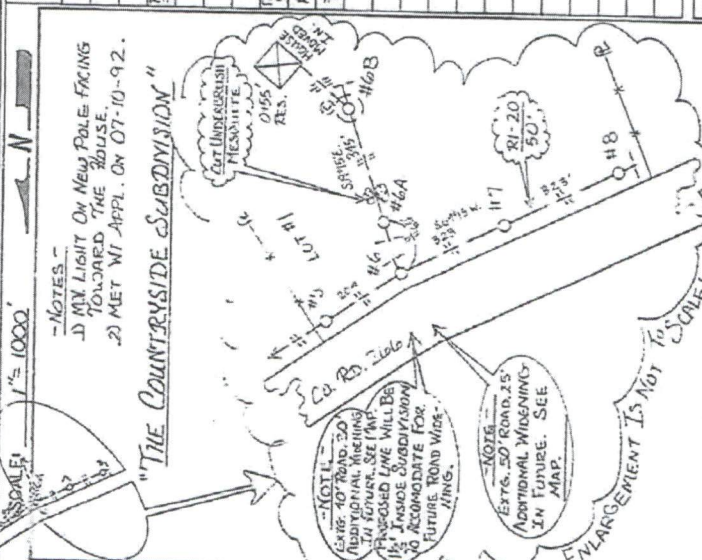 SCALE: 1"= 1000'
N
-NOTES-
1) M.V. LIGHT ON NEW POLE FACING
TOWARD THE HOUSE.
2) MET W/ APPL. ON 07-10-92.
"THE COUNTRYSIDE SUBDIVISION"
CUT UNDERBRUSH
MESQUITE
HOUSE
MOVED
IN.
0155'
RES.
#6B
#6A
#6
LOT #1
#7
#8
R1-20
50'
CO. RD.
-NOTE-
EXTG. 40' ROAD. 20'
ADDITIONAL WIDENING
IN FUTURE. SEE MAP.
PROPOSED LINE WILL BE
INSIDE SUBDIVISION
TO ACCOMODATE FOR
FUTURE ROAD WIDE-
NING.
-NOTE-
EXTG. 50' ROAD. 25'
ADDITIONAL WIDENING
IN FUTURE. SEE
MAP.
ENLARGEMENT IS NOT TO SCALE!